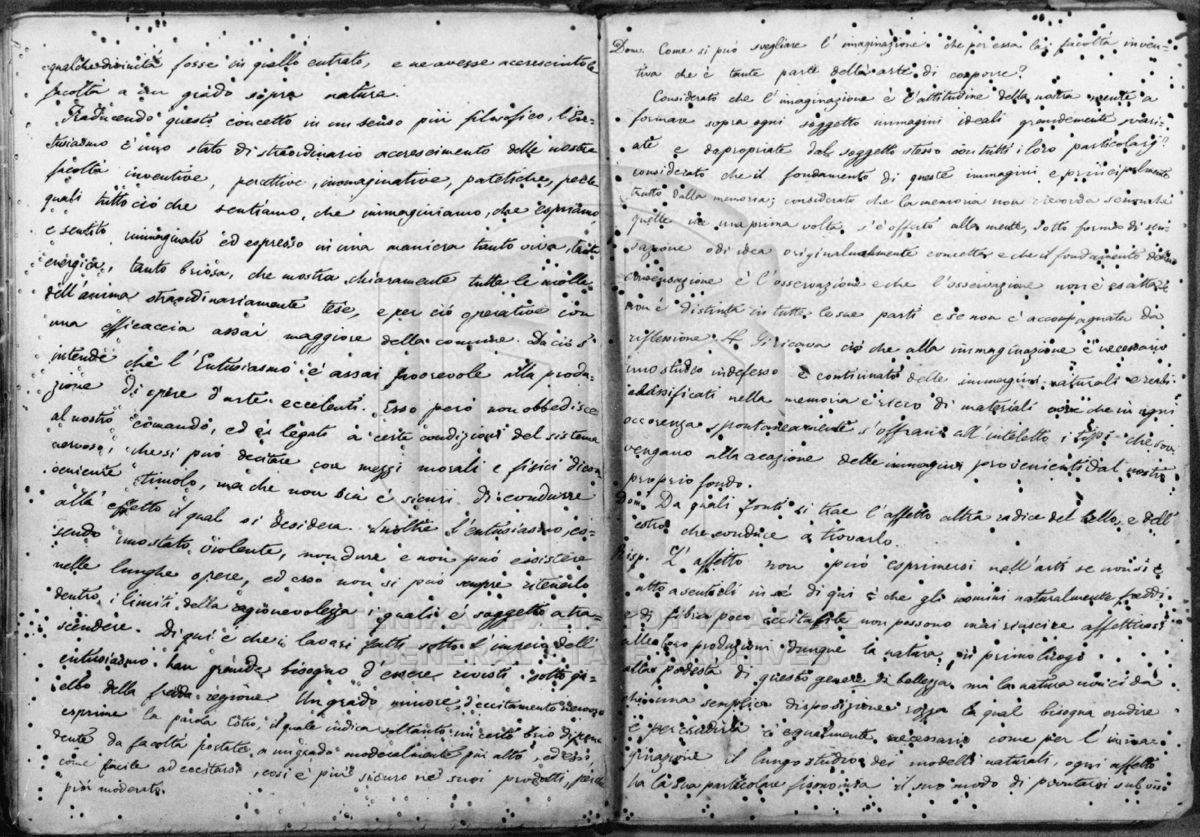 qualche divinità fosse in quello entrato, e ne avesse accresciuto le
facoltà a un grado sopra natura.
Traducendo questo concetto in un senso più filosofico, l'En-
tusiasmo è uno stato di straordinario accrescimento delle nostre
facoltà inventive, percettive, immaginative, patetiche, per le
quali tutto ciò che sentiamo, che immaginiamo, che esprimiamo,
è sentito immaginato ed espresso in una maniera tanto viva, tanto
energica, tanto briosa, che mostra chiaramente tutte le molle
dell'anima straordinariamente tese, e per ciò operative con
una efficaccia assai maggiore della comune. Da ciò s'
intende che l'Entusiasmo è assai favorevole alla produ-
zione di opere d'arte eccelenti. Esso però non obbedisce
al nostro comando, ed è legato a certe condizioni del sistema
nervoso, che si può eccitare con mezzi morali e fisici di con-
veniente stimolo, ma che non sia è sicuri di condurre
alla effetto il qual si desidera. Inoltre l'entusiasmo, es-
sendo uno stato violento, non dura e non può esistere
nelle lunghe opere, ed esso non si può sempre ritenerlo
dentro i limiti della ragionevolezza i quali è soggetto a tra-
scendere. Di qui è che i lavori fatti sotto l'impero dell'
entusiasmo han grande bisogno d'essere rivisti sotto gu-
elbo della fredda regione. Un grado minore d'eccitamento nervoso
esprime la parola Estro, il quale indica soltanto un certo brio di
dente da facoltà portate a un grado modecalmente più alto, ed essi,
come facile ad eccitarsi, così è più sicuro ne' suoi prodotti, perchè
più moderato.
Dom. Come si può svegliare l'imaginazione che per essa la facoltà inven-
tiva che è tanta parte della arte di comporre?
Considerato che l'imaginazione è l'attitudine della nostra mente a
formare sopra ogni soggetto immagini ideali grandemente svari-
ate e da propriate dal soggetto stesso con tutti i loro particolarj?
considerato che il fondamento di queste immagini è principalmente
tratto dalla memoria; considerato che la memoria non ricorda se non che
quello che una prima volta s'è offerto alla mente, sotto forma di sen-
sazione o di idea originalmente concetta e che il fondamento della
conversazione è l'osservazione e che l'osservazione non è esatta se
non è distinta in tutte le sue parti e se non è accompagnata da
riflessione. Si ricava ciò che alla immaginazione è necessario
uno studio indefesso e continuato delle immagini naturali e reali
classificati nella memoria e sicro di materiali che in ogni
occorenza spontaneamente s'offrano all'inteletto i tipi che con
vengano alla cazione delle immagini provenienti dal nostro
proprio fondo.
Dom. Da quali fonti si trae l'affetto altra radice del bello, e dell'
estro che conduce a trovarlo.
Risp. L'affetto non può esprimersi nell'arti se non si è
atto a sentirli in sé di qui è che gli uomini naturalmente freddi
e di fibra poco eccitabile non possono mai riuscire affettuosi
alle loro produzioni dunque la natura, in primo luogo
alla podestà di questo genere di bellezza, ma la natura non ci dà
che una semplice disposizione rozza la qual bisogna erudire
e per erudirla è egualmente necessario come per l'imma-
ginazione il lungo studio dei modelli naturali, ogni affetto
ha la sua particolare fisonomia il suo modo di pronunciarsi sul viso
ΓΕΝΙΚΑ ΑΡΧΕΙΑ ΤΟΥ ΚΡΑΤΟΥΣ
GENERAL STATE ARCHIVES